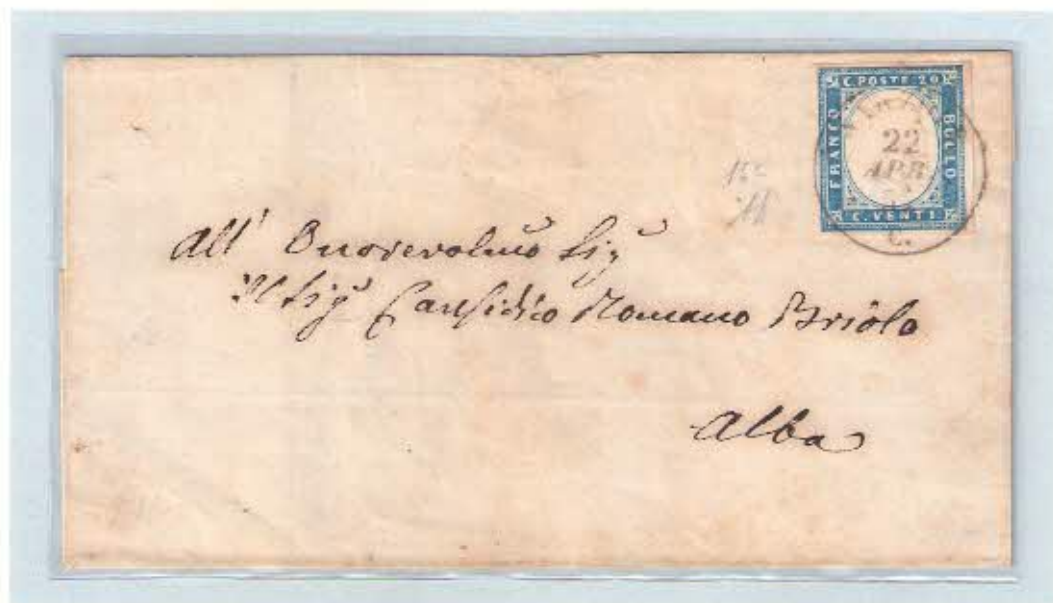 C. POSTE 20
FRANCO
BOLLO
C. VENTI
22
APR
All' Onorevolmo Sigr
Il Sigr Causidico Romano Briolo
Alba